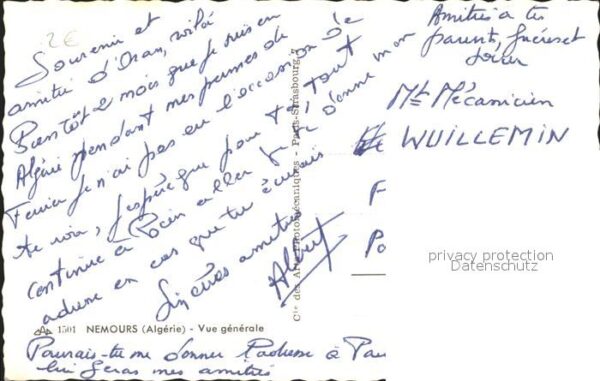 2€
Souvenir et
amitié d'Oran, voilà
Bientôt 2 mois que je suis en
Algérie pendant mes permes de
Février je n'ai pas eu l'occasion de
te voir, j'espère que pour toi tout
continue à bien aller. Je donne mon
adresse en cas que tu écrirais
Sincères amitiés
Albert
Amitiés à tes
parents, frères et
soeur
Mt Mécanicien
WUILLEMIN
F
Po
privacy protection
Datenschutz
Cie des Arts Photomécaniques - Paris-Strasbourg
1501 NEMOURS (Algérie) - Vue générale
Pourais-tu me donner l'adresse à Pau
lui feras mes amitiés